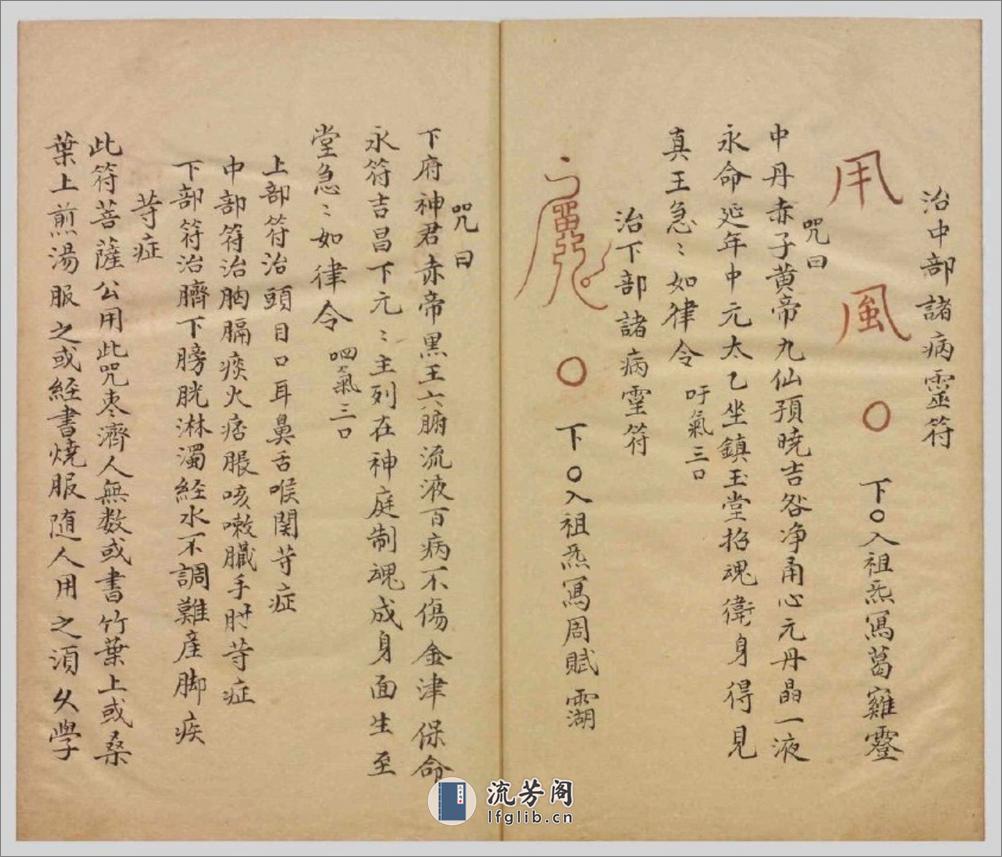 治中部諸病靈符
用風〇 下〇入祖炁寫葛雞霻
咒曰
中丹赤子黃帝九仙預曉吉咎淨甬心元丹晶一液
永命延年中元太乙坐鎮玉堂招魂衛身得見
真王急〻如律令 吁氣三口
治下部諸病靈符
魘〇 下〇入祖炁寫周賦
咒曰
下府神君赤帝黑王六腑流液百病不傷金津保命
永符吉昌下元〻主列在神庭制魂成身面生至
堂急〻如律令 呬氣三口
上部符治頭目口耳鼻舌喉関䓁症
中部符治胸膈痰火痞脹咳嗽臟手肘䓁症
下部符治臍下膀胱淋濁経水不調難產脚疾
䓁症
此符菩薩公用此咒枣濟人無数或書竹葉上或桑
葉上煎湯服之或経書燒服随人用之湏久學
流芳阁
lfglib.cn